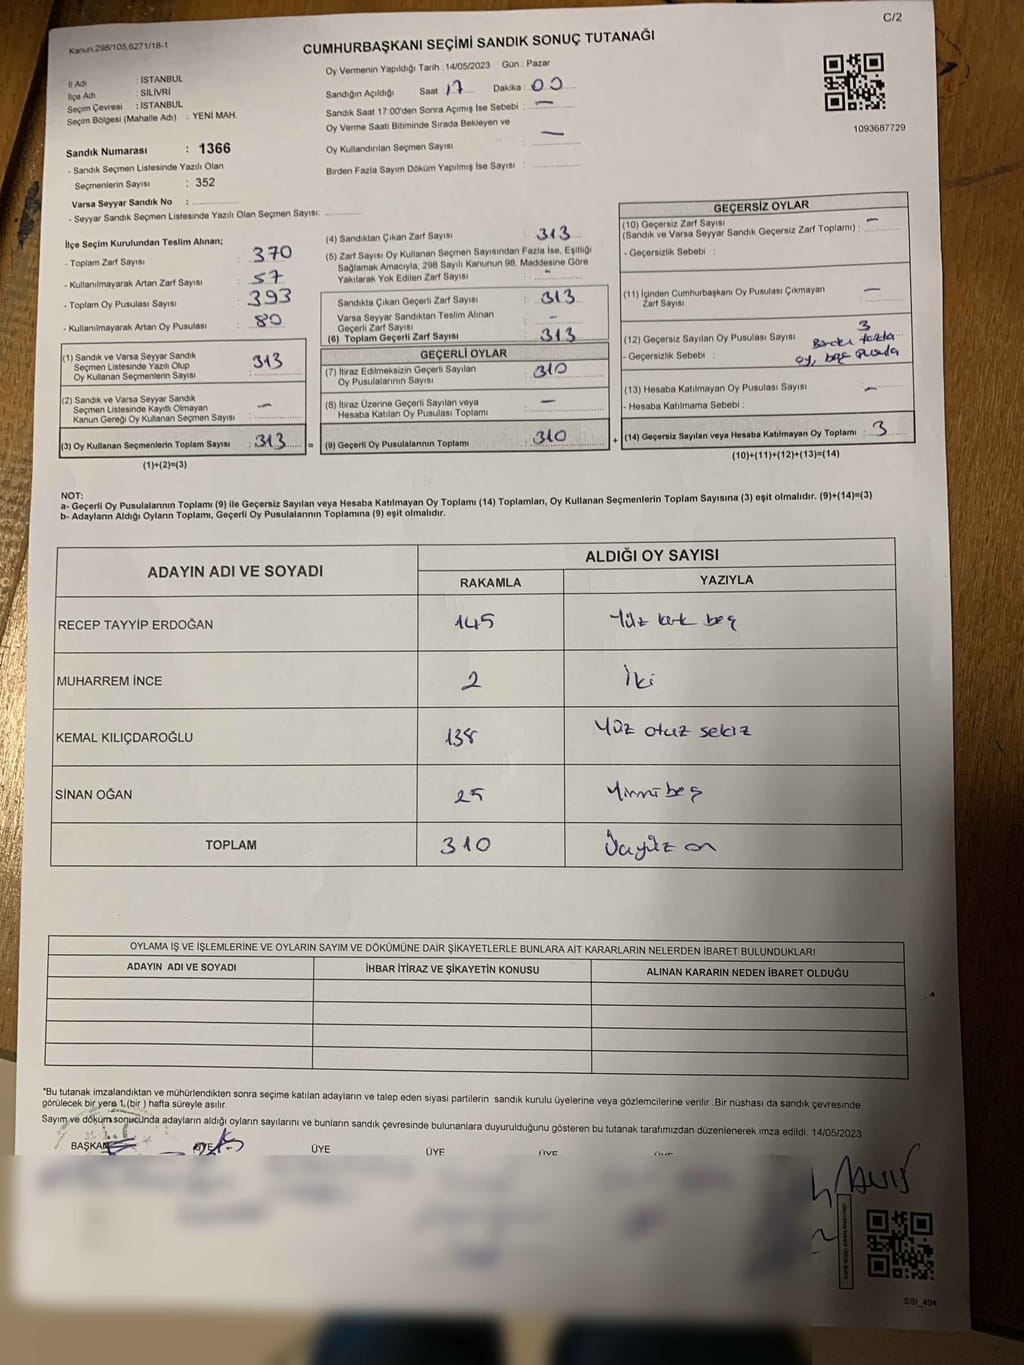 C/2
Kanun,298/105,6271/18-1
CUMHURBAŞKANI SEÇİMİ SANDIK SONUÇ TUTANAĞI
İl Adı : İSTANBUL
İlçe Adı : SİLİVRİ
Seçim Çevresi : İSTANBUL
Seçim Bölgesi (Mahalle Adı) : YENİ MAH.
Sandık Numarası : 1366
- Sandık Seçmen Listesinde Yazılı Olan
Seçmenlerin Sayısı : 352
Varsa Seyyar Sandık No :
- Seyyar Sandık Seçmen Listesinde Yazılı Olan Seçmen Sayısı:
Oy Vermenin Yapıldığı Tarih : 14/05/2023 Gün : Pazar
Sandığın Açıldığı Saat : 17 Dakika : 00
Sandık Saat 17:00'den Sonra Açımış İse Sebebi : —
Oy Verme Saati Bitiminde Sırada Bekleyen ve
Oy Kullandırılan Seçmen Sayısı : —
Birden Fazla Sayım Döküm Yapılmış İse Sayısı :
1093687729
İlçe Seçim Kurulundan Teslim Alınan;
- Toplam Zarf Sayısı : 370
- Kullanılmayarak Artan Zarf Sayısı : 57
- Toplam Oy Pusulası Sayısı : 393
- Kullanılmayarak Artan Oy Pusulası : 80
(1) Sandık ve Varsa Seyyar Sandık
Seçmen Listesinde Yazılı Olup
Oy Kullanan Seçmenlerin Sayısı : 313
(2) Sandık ve Varsa Seyyar Sandık
Seçmen Listesinde Kayıtlı Olmayan
Kanun Gereği Oy Kullanan Seçmen Sayısı : —
(3) Oy Kullanan Seçmenlerin Toplam Sayısı : 313 =
(1)+(2)=(3)
(4) Sandıktan Çıkan Zarf Sayısı : 313
(5) Zarf Sayısı Oy Kullanan Seçmen Sayısından Fazla İse, Eşitliği
Sağlamak Amacıyla; 298 Sayılı Kanunun 98. Maddesine Göre
Yakılarak Yok Edilen Zarf Sayısı : -
Sandıkta Çıkan Geçerli Zarf Sayısı : 313
Varsa Seyyar Sandıktan Teslim Alınan
Geçerli Zarf Sayısı : -
(6) Toplam Geçerli Zarf Sayısı : 313
GEÇERLİ OYLAR
(7) İtiraz Edilmeksizin Geçerli Sayılan
Oy Pusulalarının Sayısı : 310
(8) İtiraz Üzerine Geçerli Sayılan veya
Hesaba Katılan Oy Pusulası Toplamı : —
(9) Geçerli Oy Pusulalarının Toplamı : 310 +
GEÇERSİZ OYLAR
(10) Geçersiz Zarf Sayısı
(Sandık ve Varsa Seyyar Sandık Geçersiz Zarf Toplamı) : —
- Geçersizlik Sebebi :
(11) İçinden Cumhurbaşkanı Oy Pusulası Çıkmayan
Zarf Sayısı : —
(12) Geçersiz Sayılan Oy Pusulası Sayısı : 3
- Geçersizlik Sebebi : Birden fazla
oy, boş pusula
(13) Hesaba Katılmayan Oy Pusulası Sayısı : —
- Hesaba Katılmama Sebebi :
(14) Geçersiz Sayılan veya Hesaba Katılmayan Oy Toplamı : 3
(10)+(11)+(12)+(13)=(14)
NOT:
a- Geçerli Oy Pusulalarının Toplamı (9) ile Geçersiz Sayılan veya Hesaba Katılmayan Oy Toplamı (14) Toplamları, Oy Kullanan Seçmenlerin Toplam Sayısına (3) eşit olmalıdır. (9)+(14)=(3)
b- Adayların Aldığı Oyların Toplamı, Geçerli Oy Pusulalarının Toplamına (9) eşit olmalıdır.
ADAYIN ADI VE SOYADI ALDIĞI OY SAYISI
RAKAMLA YAZIYLA
RECEP TAYYİP ERDOĞAN 145 Yüz kırk beş
MUHARREM İNCE 2 İki
KEMAL KILIÇDAROĞLU 138 Yüz otuz sekiz
SİNAN OĞAN 25 Yirmi beş
TOPLAM 310 Üçyüz on
OYLAMA İŞ VE İŞLEMLERİNE VE OYLARIN SAYIM VE DÖKÜMÜNE DAİR ŞİKAYETLERLE BUNLARA AİT KARARLARIN NELERDEN İBARET BULUNDUKLARI
ADAYIN ADI VE SOYADI İHBAR İTİRAZ VE ŞİKAYETİN KONUSU ALINAN KARARIN NEDEN İBARET OLDUĞU
*Bu tutanak imzalandıktan ve mühürlendikten sonra seçime katılan adayların ve talep eden siyasi partilerin sandık kurulu üyelerine veya gözlemcilerine verilir .Bir nüshası da sandık çevresinde
görülecek bir yere 1,(bir ) hafta süreyle asılır.
Sayım ve döküm sonucunda adayların aldığı oyların sayılarını ve bunların sandık çevresinde bulunanlara duyurulduğunu gösteren bu tutanak tarafımızdan düzenlenerek imza edildi. 14/05/2023
BAŞKAN ÜYE ÜYE ÜYE ÜYE
SSI_404